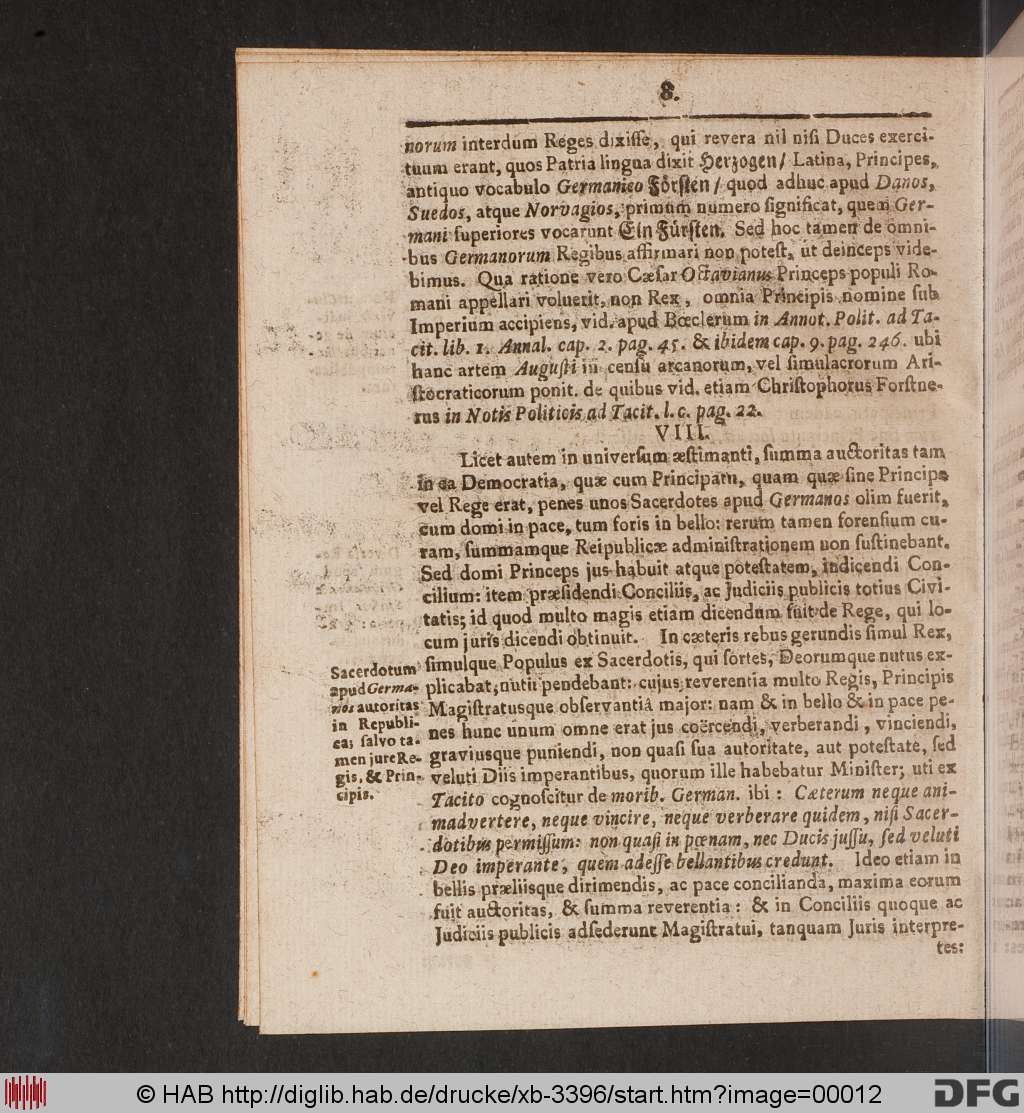 8.
norum interdum Reges dixisse, qui revera nil nisi Duces exerci-
tuum erant, quos Patria lingua dixit Herzogen / Latina, Principes,
antiquo vocabulo Germanico Försten / quod adhuc apud Danos,
Suedos, atque Norvagios, primum numero significat, quem Ger-
mani superiores vocarunt Ein Fürsten. Sed hoc tamen de omni-
bus Germanorum Regibus affirmari non potest, ut deinceps vide-
bimus. Qua ratione vero Cæsar Octavianus Princeps populi Ro-
mani appellari voluerit, non Rex, omnia Principis nomine sub
Imperium accipiens, vid. apud Bœclerum in Annot. Polit. ad Ta-
cit. lib. 1. Annal. cap. 2. pag. 45. & ibidem cap. 9. pag. 246. ubi
hanc artem Augusti in censu arcanorum, vel simulacrorum Ari-
stocraticorum ponit. de quibus vid. etiam Christophorus Forstne-
rus in Notis Politicis ad Tacit. l. c. pag. 22.
VIII.
Licet autem in universum æstimanti, summa auctoritas tam
in ea Democratia, quæ cum Principatu, quam quæ sine Principe
vel Rege erat, penes unos Sacerdotes apud Germanos olim fuerit,
cum domi in pace, tum foris in bello: rerum tamen forensium cu-
ram, summamque Reipublicæ administrationem non sustinebant.
Sed domi Princeps jus habuit atque potestatem, indicendi Con-
cilium: item præsidendi Conciliis, ac Judiciis publicis totius Civi-
tatis; id quod multo magis etiam dicendum fuit de Rege, qui lo-
cum juris dicendi obtinuit. In cæteris rebus gerundis simul Rex,
simulque Populus ex Sacerdotis, qui sortes, Deorumque nutus ex-
plicabat, nutu pendebant: cujus reverentia multo Regis, Principis
Magistratusque observantiâ major: nam & in bello & in pace pe-
nes hunc unum omne erat jus coërcendi, verberandi, vinciendi,
graviusque puniendi, non quasi sua autoritate, aut potestate, sed
veluti Diis imperantibus, quorum ille habebatur Minister; uti ex
Tacito cognoscitur de morib. German. ibi: Cæterum neque ani-
madvertere, neque vincire, neque verberare quidem, nisi Sacer-
dotibus permissum: non quasi in pœnam, nec Ducis jussu, sed veluti
Deo imperante, quem adesse bellantibus credunt. Ideo etiam in
bellis præliisque dirimendis, ac pace concilianda, maxima eorum
fuit auctoritas, & summa reverentia: & in Conciliis quoque ac
Judiciis publicis adsederunt Magistratui, tanquam Juris interpre-
tes:
Sacerdotum
apud Germa-
nos autoritas
in Republi-
ca; salvo ta-
men jure Re-
gis, & Prin-
cipis.
© HAB http://diglib.hab.de/drucke/xb-3396/start.htm?image=00012
DFG